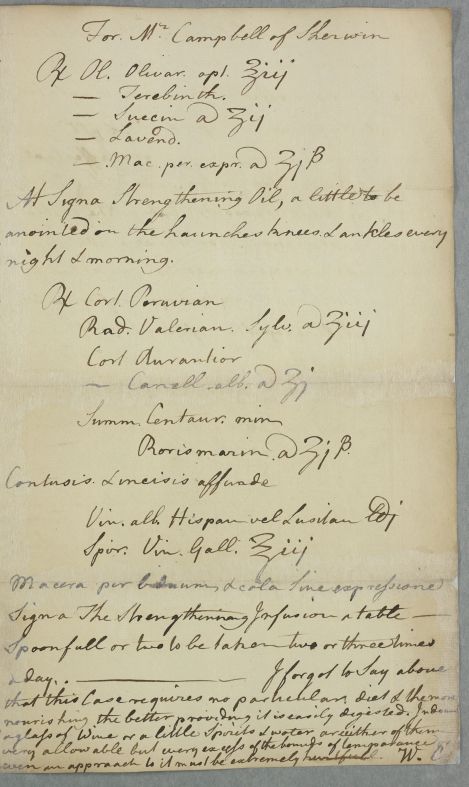 For. Mr. Campbell of Sherwin
℞ Ol. Olivar. opt. ℥iij
— Terebinth.
— Succin a ʒij
— Lavend.
— Mac. per. expr. a ʒj ß
At Signa Strengthening Oil, a little to be
anointed on the haunches knees & ankles every
night & morning.
℞ Cort. Peruvian
Rad. Valerian. Sylv. a ʒiij
Cort Aurantior
— Canell. alb. a ʒj
Summ. Centaur. min
Rorismarin. a ʒj ß.
Contusis. & incisis affunde
Vin. alb. Hispan vel Lusitan ℔j
Spir. Vin. Gall. ℥iij
Macera per biduum, & cola sine expressione
Signa The Strengthening Infusion a table —
Spoonfull or two to be taken two or three times
a day. . — I forgot to Say above
that this Case requires no particular diet & the more
nourishing the better providing it is easily digested,
a glass of Wine or a little Spirits & water, or either of them
very allowable but every excess of the bounds of temperance
even an approach to it must be extremely hurtfull. W.